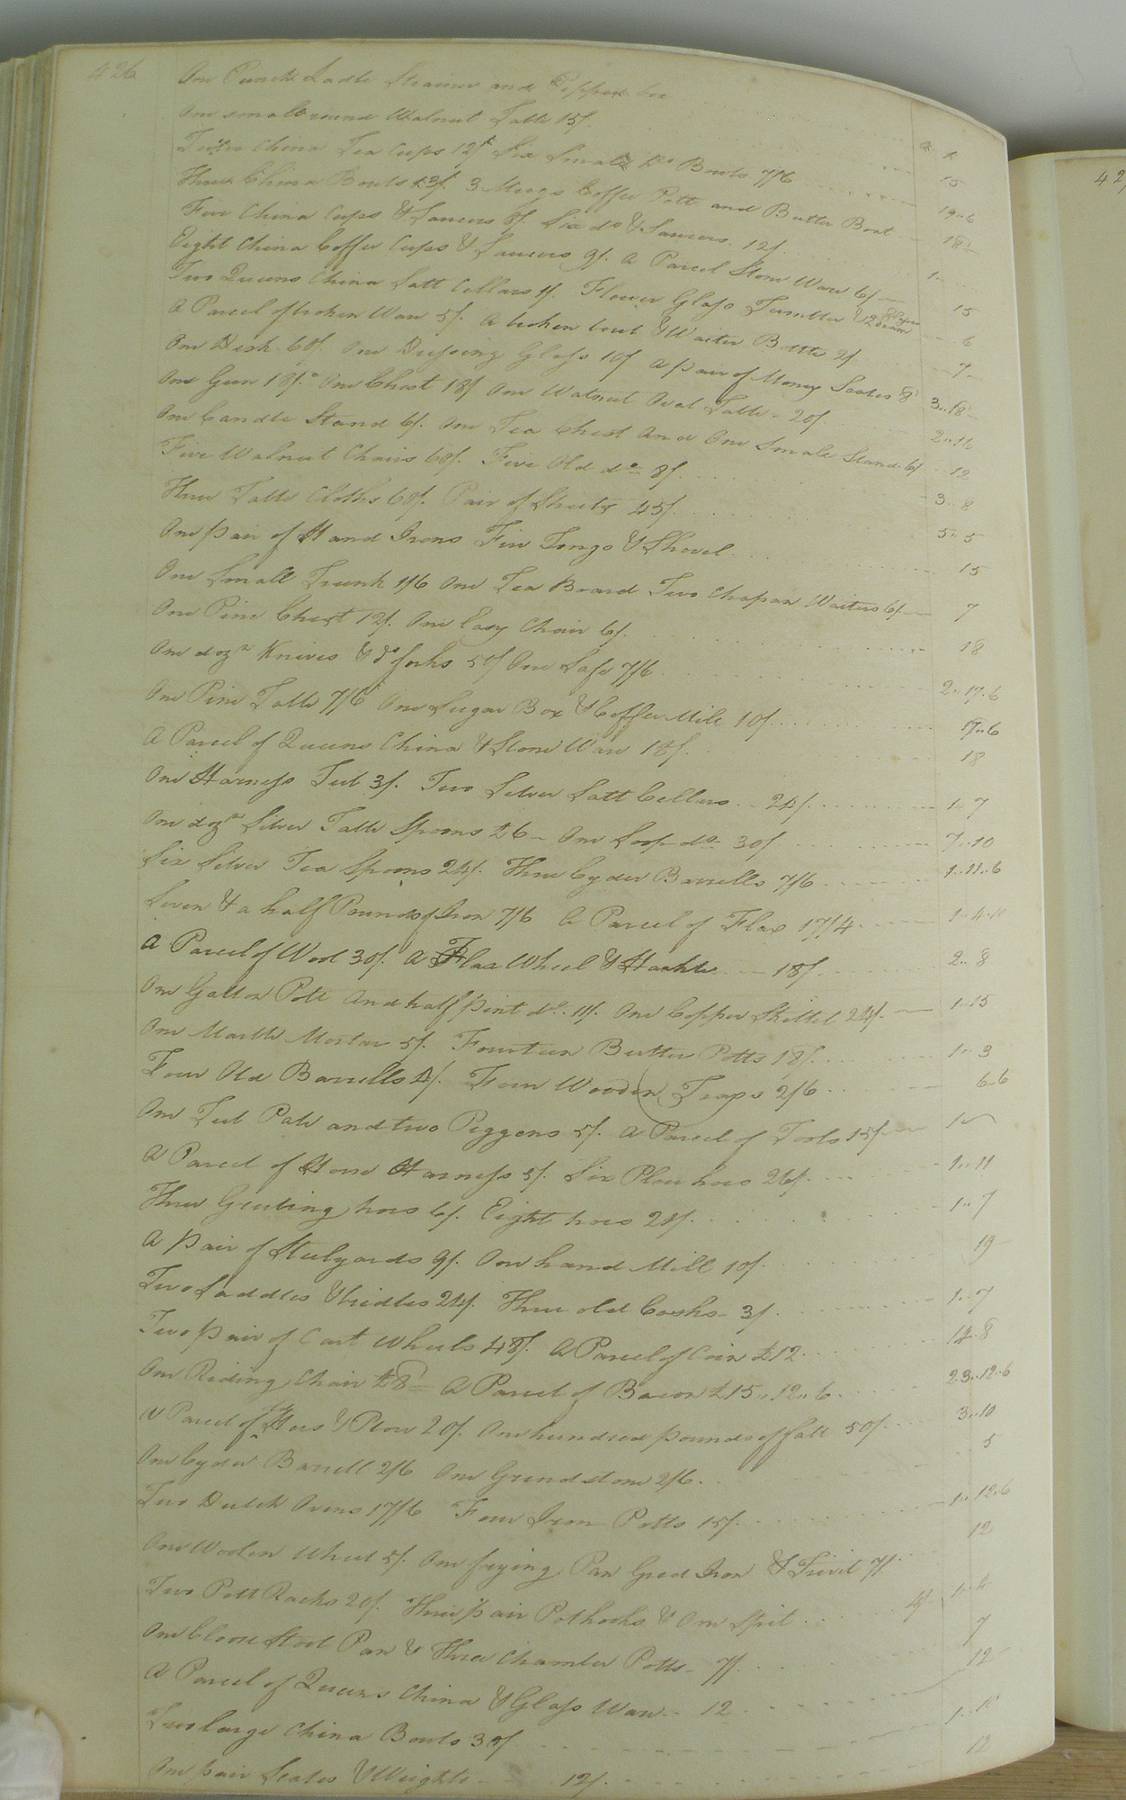 426
One Punch Ladle Strainer and Pepper box
One small round Walnut Table 15/. 15
Twelve China Tea Cups 12/ Six Small Do. Bowls 7/6 19..6
Three China Bowls 3/. 3 Mugs Coffee Pott and Butter Boat 18
Five China Cups & Saucers 8/. Six do & Saucers. 12/. 1..
Eight China Coffee Cups & Saucers 9/. A Parcel Stone Ware 6/ 15
Two Queens China Salt Cellars 1/. Flower Glass Tumbler & 6
A Parcel of broken Ware 5/. A broken Cruet & Waiter Bottle 2/. 7
One Desk 60/. One Dressing Glass 10/ A pair of Money Scales 8/ 3..18
One Gun 18/. One Chest 18/ One Walnut Oval Table 20/ 2..16
One Candle Stand 6/. One Tea Chest And One Small Stand 6/ 12
Five Walnut Chairs 60/. Five Old do 8/. 3..8
Three Table Cloths 60/. Pair of Sheets 45/. 5..5
One pair of Hand Irons Fire Tongs & Shovel 15
One Small Trunk 1/6 One Tea Board Two Waiters 6/ 7
One Pine Chest 12/. One Easy Chair 6/. 18
One dozn. Knives & do forks 50/ One Safe 7/6 2..17.6
One Pine Table 7/6 One Sugar Box & Coffee Mill 10/. 17..6
A Parcel of Queens China & Stone Ware 18/. 18
One Harness Tub 3/. Two Silver Salt Cellars 24/. 1..7
One dozn. Silver Table Spoons £6 One Soop do. 30/ 7..10
Six Silver Tea Spoons 24/. Three Cyder Barrells 7/6 1..11..6
Seven & a half Pounds of Iron 7/6 A Parcel of Flax 17/4 1..4..
A Parcel of Wool 30/. A Flax Wheel & Hackle 18/. 2..8
One Gallon Pott And half pint do. 11/. One Copper Skillet 24/. 1..15
One Marble Mortar 5/. Fourteen Butter Potts 18/. 1..3
Four Old Barrells 4/. Four Wooden Trays 2/6 6..6
One Tub Pale and two Piggons 5/. A Parcel of Tools 15/ 1
A Parcel of Horse Harness 5/. Six Plow hoes 26/. 1..11
Three Grubing hoes 6/. Eight hoes 21/. 1..7
A pair of Stilyards 9/. One hand Mill 10/. 19
Two Saddles & bridles 24/. Three old Casks 3/. 1..7
Two pair of Cart Wheels 48/. A Parcel of Corn £12 14..8
One Riding Chair £8 A Parcel of Bacon £15..12..6 23..12.6
A Parcel of & Plow 20/. One hundred pounds of salt 50/. 3..10
One Cyder Barrell 2/6 One Grindstone 2/6. 5
Two Dutch Ovens 17/6 Four Iron Potts 15/. 1..12.6
One Woolen Wheel 5/. One frying Pan Grid Iron & Trivil 7/ 12
Two Pott Racks 20/. Three pair Pothooks & One Spit 4/ 1..4
One Close Stool Pan & Three Chamber Potts 7/ 7
A Parcel of Queens China & Glass Ware 12 12
Two large China Bowls 30/ 1..10
One pair Scales & Weights 12/. 12